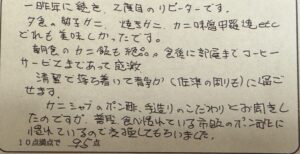 一昨年に続き、2度目のリピーターです。
夕食の蟹うに、焼きガニ、カニ味噌甲羅焼etc
どれも美味しかったです。
朝食のカニ飯も絶品。食後に部屋までコーヒー
サービスまであって感激
清潔で落ち着いて静か(低層の周りも)に過ご
せます。
カニシャブのポン酢、手造りのこだわりとお聞きし
たのですが、普段、食べ慣れている市販のポン酢に
慣れているので変えてもらいました。
10点満点で 95点